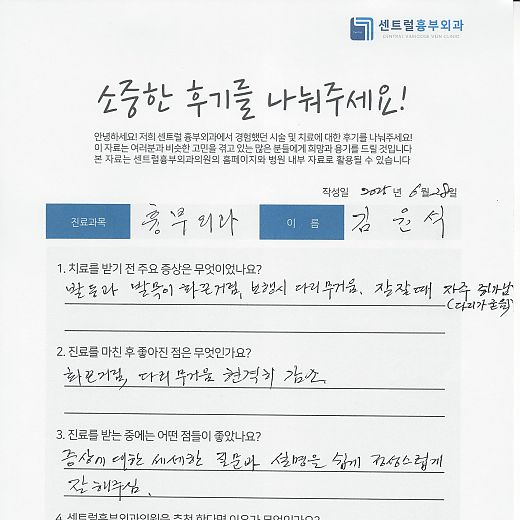 센트럴흉부외과
CENTRAL VARICOSE VEIN CLINIC
소중한 후기를 나눠주세요!
안녕하세요! 저희 센트럴 흉부외과에서 경험했던 시술 및 치료에 대한 후기를 나눠주세요!
이 자료는 여러분과 비슷한 고민을 겪고 있는 많은 분들에게 희망과 용기를 드릴 것입니다
본 자료는 센트럴흉부외과의원의 홈페이지와 병원 내부 자료로 활용될 수 있습니다
작성일 2025 년 6월 28일
진료과목 흉부외과 이 름 김윤석
1. 치료를 받기 전 주요 증상은 무엇이었나요?
발등과 발목이 화끈거림, 보행시 다리무거움. 잠잘때 자주
(다리가
2. 진료를 마친 후 좋아진 점은 무엇인가요?
화끈거림, 다리무거움 현격히 감소.
3. 진료를 받는 중에는 어떤 점들이 좋았나요?
증상에 대한 세세한 질문과 설명을 쉽게 정성스럽게
잘 해주심.
4. 센트럴흉부외과의원을 추천 한다면 이유가 무엇인가요?